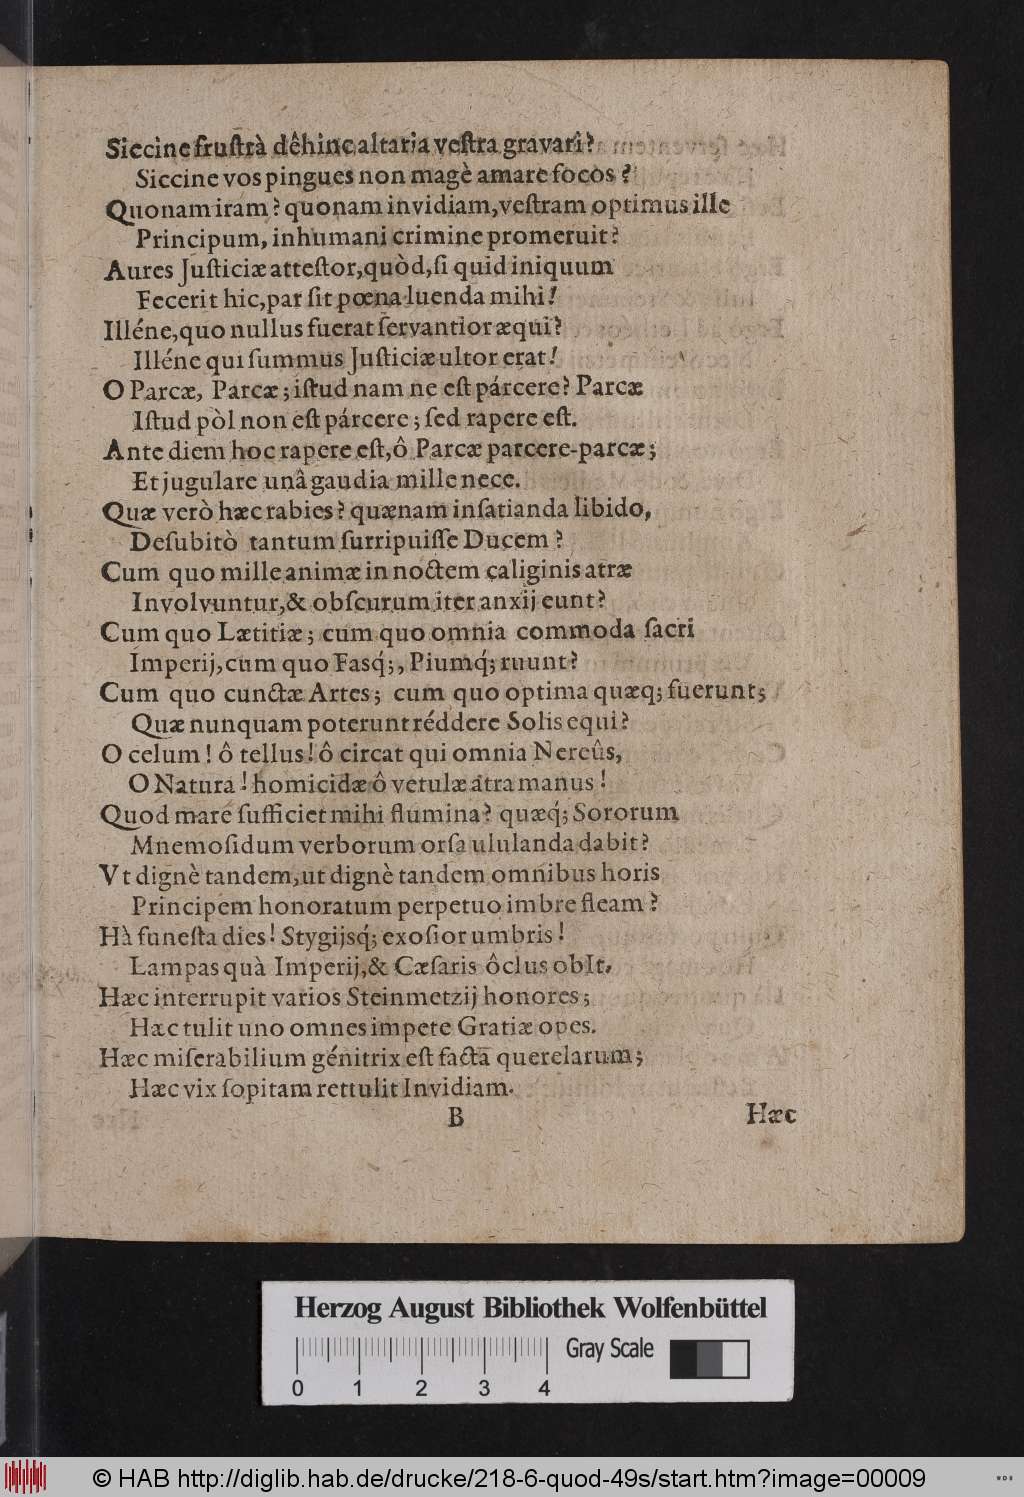 Siccine frustrà dêhinc altaria vestra gravari?
Siccine vos pingues non magè amare focos?
Quonam iram? quonam invidiam, vestram optimus ille
Principum, inhumani crimine promeruit?
Aures Justiciæ attestor, quòd, si quid iniquum
Fecerit hic, par sit pœna luenda mihi!
Illéne, quo nullus fuerat servantior æqui?
Illéne qui summus Justiciæ ultor erat!
O Parcæ, Parcæ; istud nam ne est párcere? Parcæ
Istud pòl non est párcere; sed rapere est.
Ante diem hoc rapere est, ô Parcæ parcere-parcæ;
Et jugulare unâ gaudia mille nece.
Quæ verò hæc rabies? quænam insatianda libido,
Desubitò tantum surripuisse Ducem?
Cum quo mille animæ in noctem caliginis atræ
Involvuntur, & obscurum iter anxij eunt?
Cum quo Lætitiæ; cum quo omnia commoda sacri
Imperij, cum quo Fasq́;, Piumq́; ruunt?
Cum quo cunctæ Artes; cum quo optima quæq; fuerunt;
Quæ nunquam poterunt réddere Solis equi?
O celum! ô tellus! ô circat qui omnia Nereûs,
O Natura! homicidæ ô vetulæ atra manus!
Quod mare sufficiet mihi flumina? quæq́; Sororum
Mnemosidum verborum orsa ululanda dabit?
Vt dignè tandem, ut dignè tandem omnibus horis
Principem honoratum perpetuo imbre fleam?
Hà funesta dies! Stygijsq́; exosior umbris!
Lampas quà Imperij, & Cæsaris ôclus obIt,
Hæc interrupit varios Steinmetzij honores;
Hæc tulit uno omnes impete Gratiæ opes.
Hæc miserabilium génitrix est facta querelarum;
Hæc vix sopitam rettulit Invidiam.
B Hæc
Herzog August Bibliothek Wolfenbüttel
Gray Scale
0 1 2 3 4
© HAB http://diglib.hab.de/drucke/218-6-quod-49s/start.htm?image=00009